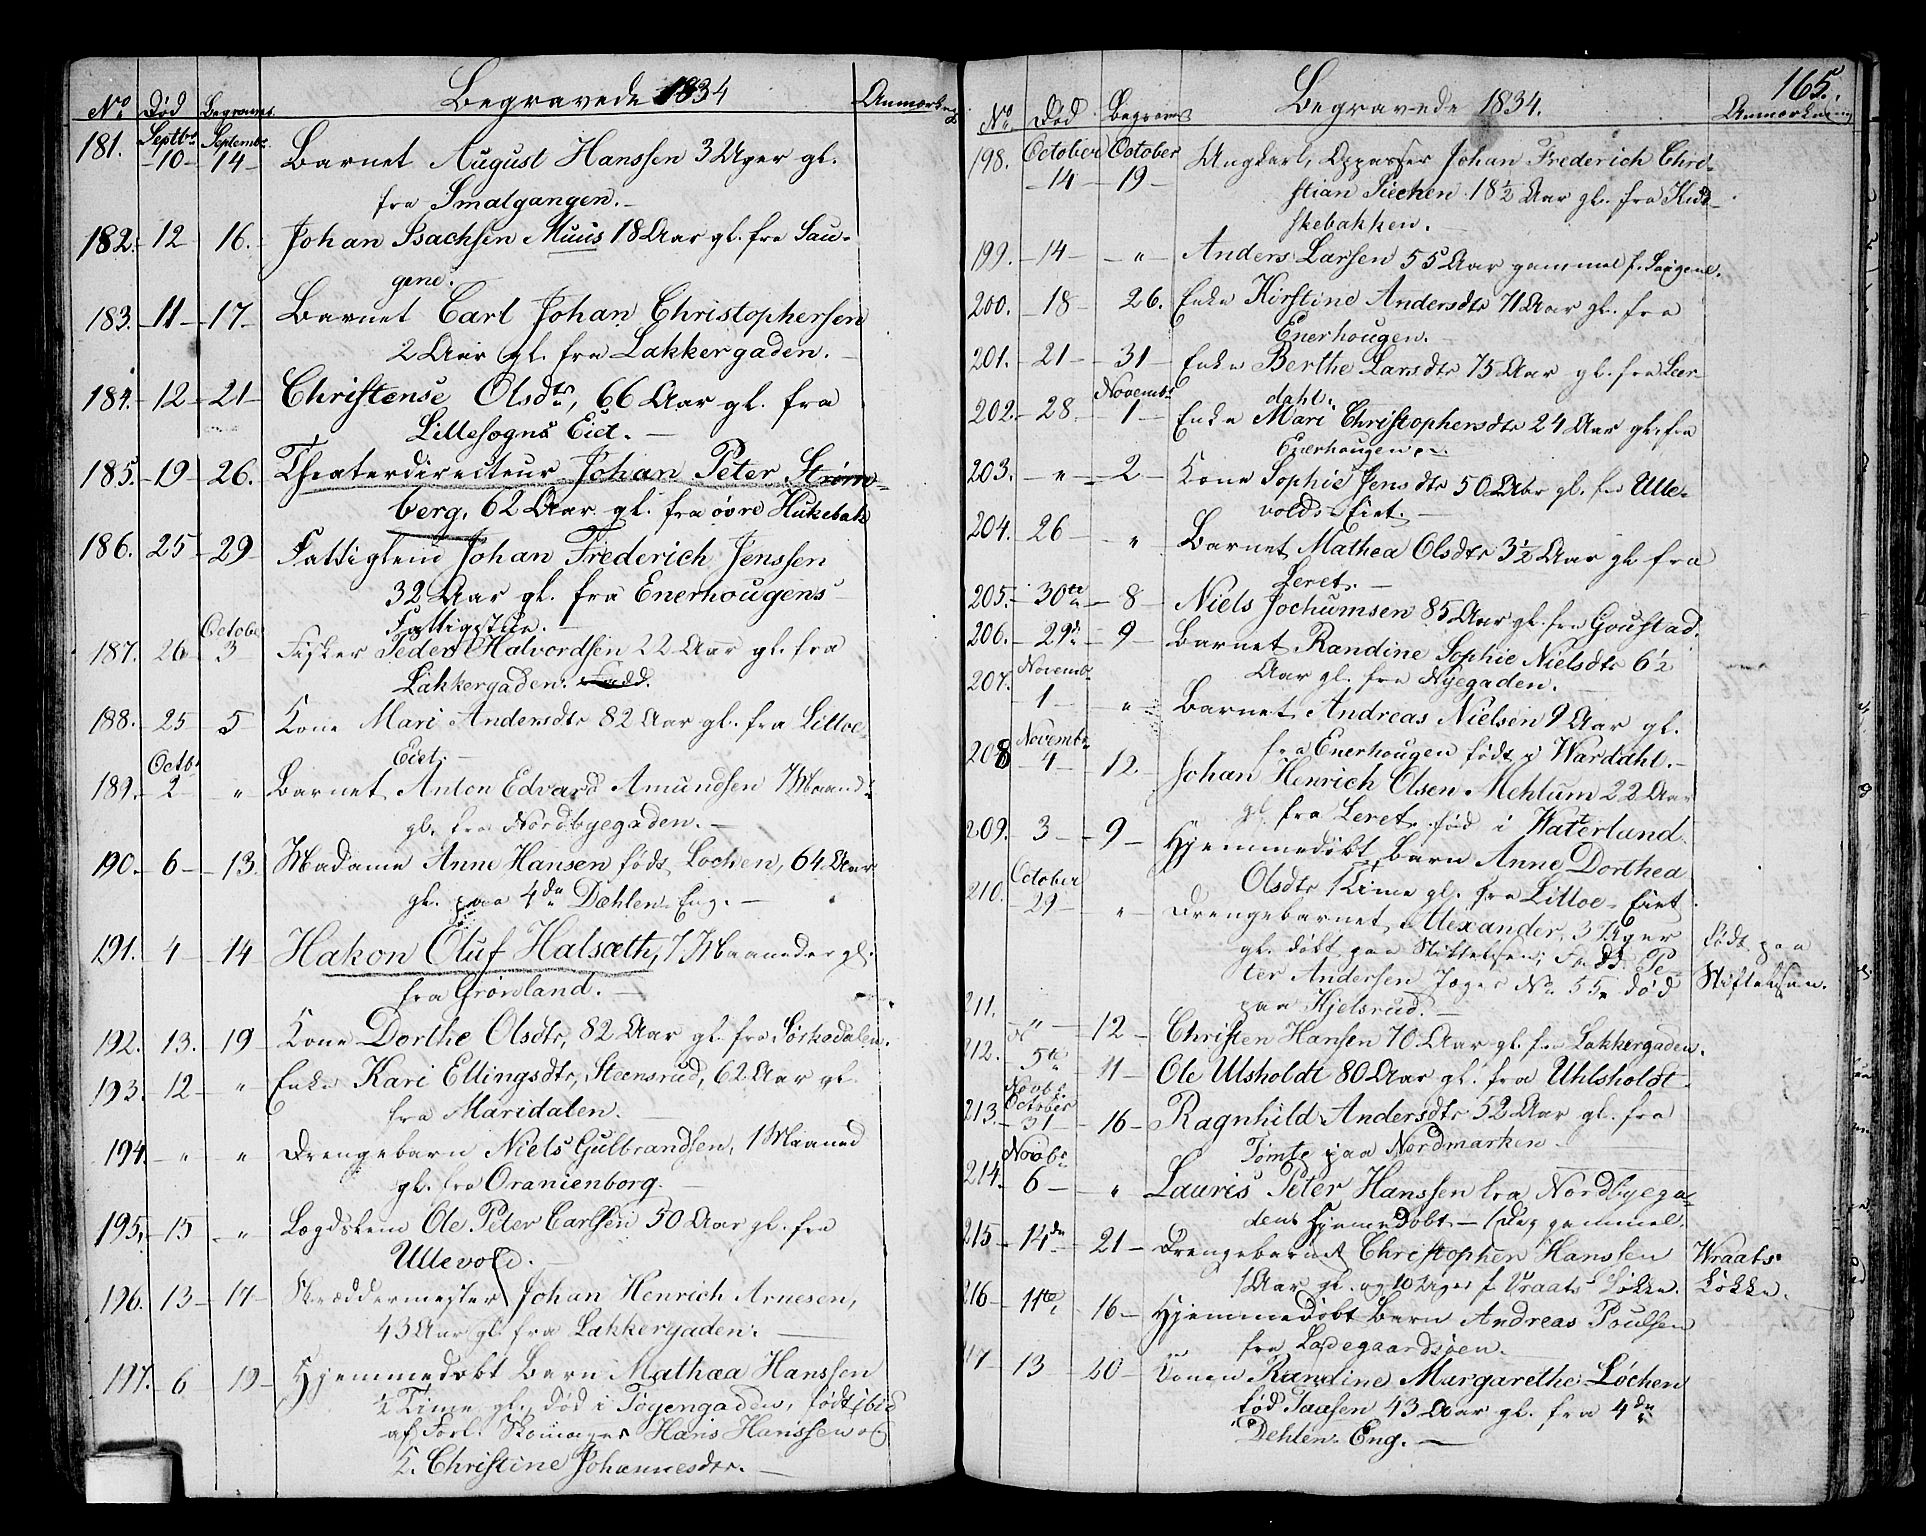 Begravede 1834
No Død Begravs. Anmærkng
181. Septbr 10 Septembr 14 Barnet August Hanssen 3 Uger gl.
fra Smalgangen.
182. 12 16. Johan Isachsen Muus 18 Aar gl. fra Sau-
gene.
183. 11 17 Barnet Carl Johan Christophersen
2 Aar gl. fra Lakkergaden.
184. 12 21 Christense Olsdtr, 66 Aar gl. fra
Lillesogns Eiet.
185. 19 26. Theaterdirecteur Johan Peter Strøm-
berg, 62 Aar gl. fra øvre Hukebak
186. 25 29 Fattiglem Johan Frederich Jenssen
32 Aar gl. fra Enerhougens
Fattigstue.
187. 26 October 3 Fisker Peder Halvordsen 22 Aar gl. fra
Lakkergaden.
188. 25 5 Kone Mari Andersdtr 82 Aar gl. fra Lilloe-
Eiet.
189. Octbr 2 " Barnet Anton Edvard Amundsen 7 Maand
gl. fra Nordbyegaden.
190. 6 13. Madame Anne Hansen født Lochen, 64 Aar
gl. paa 4de Dæhlen-Eng.
191. 4 14 Hakon Oluf Halsæth, 7 Maaneder gl.
fra Grønland.
192. 13. 19 Kone Dorthe Olsdtr, 82 Aar gl. fra Sørkedalen.
193. 12 " Enke Kari Ellingsdtr, Steensrud, 62 Aar gl.
fra Maridalen.
194. " " Drengebarn Niels Gulbrandsen, 1 Maaned
gl. fra Oranienborg.
195. 15 " Lægdslem Ole Peter Carlsen 50 Aar gl. fra
Ullevold.
196. 13 17 Skræddermester Johan Henrich Arnesen,
43 Aar gl. fra Lakkergaden.
197. 6 19 Hjemmedøbt Barn Mathæa Hanssen
½ Time gl. død i Tøyengaden, født ibid
af Forl. Skomager Hans Hanssen og
K. Christine Johannesdtr.
165.
Begravede 1834.
No. Død Begravs Anmærkning
198. October 14 October 19 Ungkarl, Oppasser Johan Frederich Chri-
stian Siechen 18½ Aar gl. fra Hud-
skebakken.
199. 14 " Anders Larsen 55 Aar gammel f. Saugene.
200. 18 26. Enke Kirstine Andersdtr 71 Aar gl. fra
Enerhougen.
201. 21 31 Enke Berthe Larsdtr 75 Aar gl. fra Lær-
dahl.
202. 28 Novembr 1 Enke Mari Christophersdtr 24 Aar gl. fra
Enerhougen.
203. " 2 Kone Sophie Jensdtr 50 Aar gl. fra Ulle-
volds-Eiet.
204. 26 " Barnet Mathea Olsdtr 3½ Aar gl. fra
Leret.
205. 30te 8 Niels Jochumsen 85 Aar gl. fra Goustad.
206. 29d 9 Barnet Randine Sophie Nielsdtr 6½
Aar gl. fra Nyegaden.
207. Novembr 1 " Barnet Andreas Nielsen 9 Aar gl.
fra Enerhougen født i Wardahl.
208 Novembr 4 12. Johan Henrich Olsen Mehlum 22 Aar
gl. fra Leret. fød i Waterland
209. 3 9 Hjemmedøbt Barn Anne Dorthea
Olsdtr 1 Time gl. fra Lilloe-Eiet
210. October 29 " Drengebarnet Alexander, 3 Uger
gl. døbt paa Stiftelsen; Fadr Pe-
ter Andersen Jæger No 55, død
paa Hjelsrud.
født paa
Stiftelsen.
211. " 12 Christen Hansen 70 Aar gl. fra Lakkergaden.
212. 5te Novbr 11 Ole Ulsholdt 80 Aar gl. fra Uhlsholdt
213. October 31 16 Ragnhild Andersdtr 52 Aar gl. fra
Tømte paa Nordmarken
214. Novbr 6 " Lauris Peter Hanssen fra Nordbyega-
den Hjemedøbt 1 Dag gammel.
215 14de 21 Drengebarnet Christopher Hanssen
1 Aar gl. og 10 Uger f. Vraats Løkke.
Wraats
Løkke.
216 11te 16 Hjemmedøbt Barn Andreas Poulsen
fra Ladegaardsøen.
17 13 20 Konen Randine Margarethe Løchen
fød Paulsen 43 Aar gl. fra 4de
Dehlen-Eng.